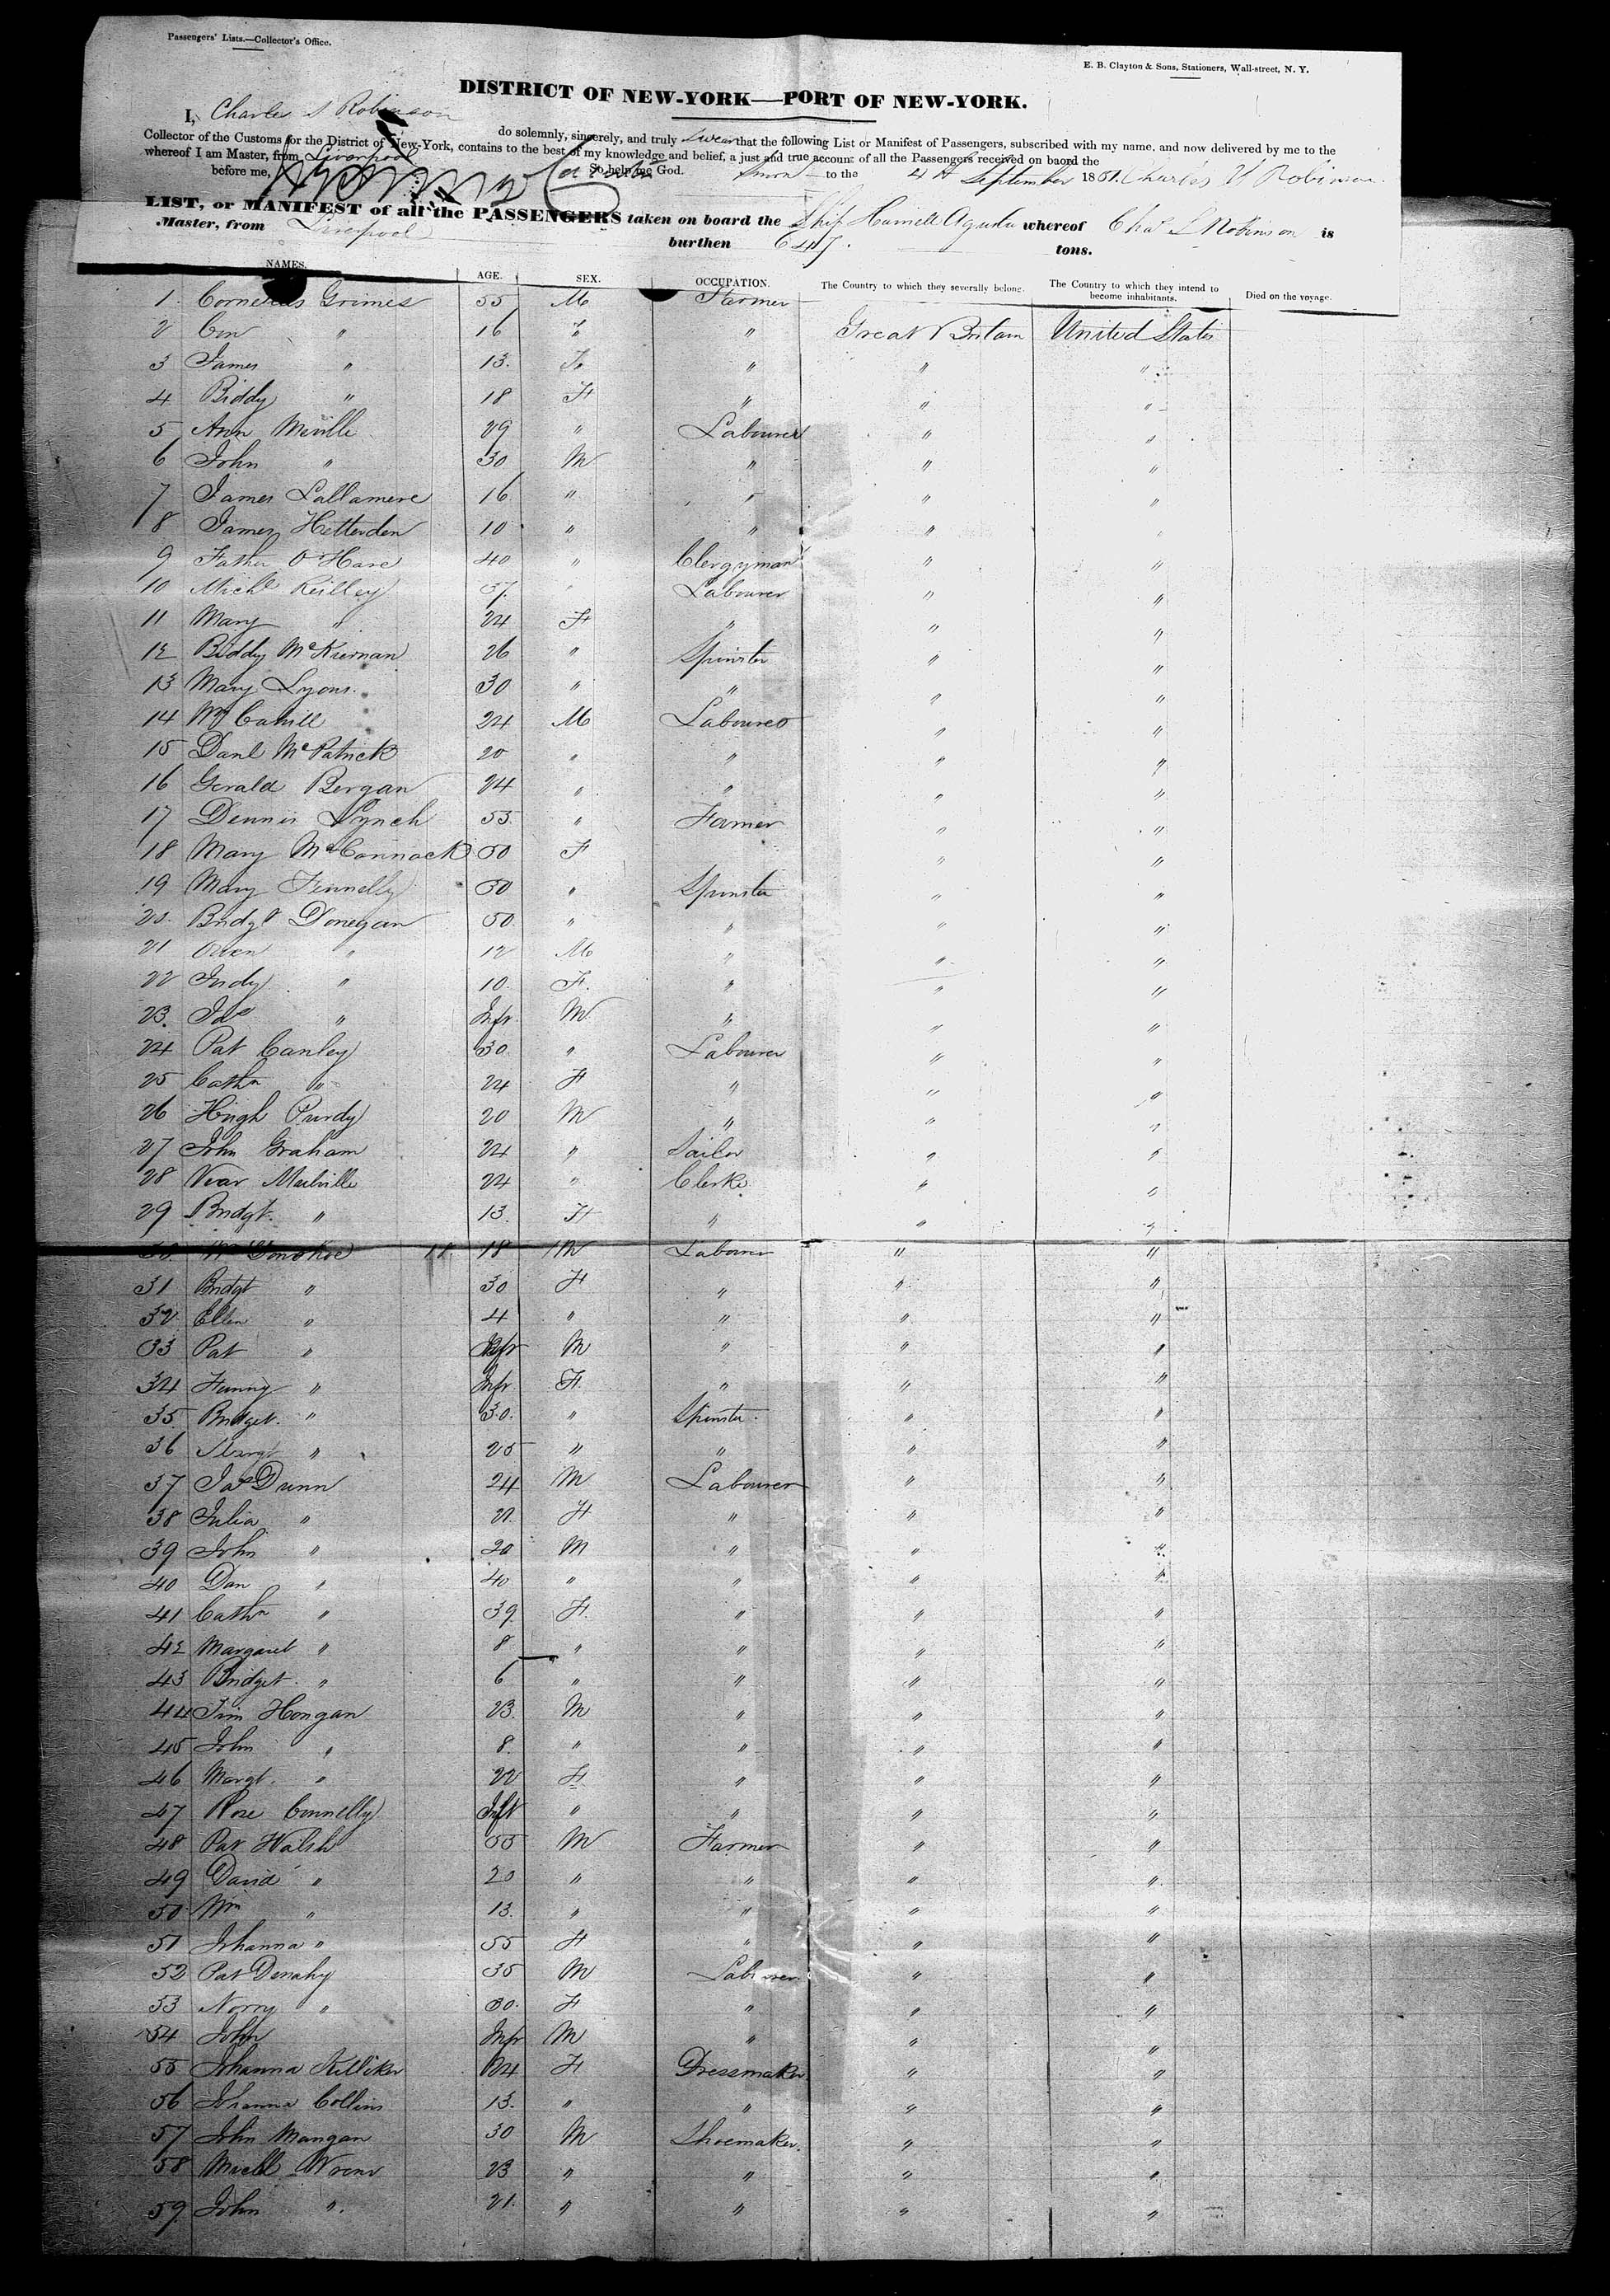 Passengers' Lists.—Collector's Office.
E. B. Clayton & Sons, Stationers, Wall-street, N. Y.
DISTRICT OF NEW-YORK—PORT OF NEW-YORK.
I, Charles S Robinson do solemnly, sincerely, and truly swear that the following List or Manifest of Passengers, subscribed with my name, and now delivered by me to the
Collector of the Customs for the District of New-York, contains to the best of my knowledge and belief, a just and true account of all the Passengers received on baord the
whereof I am Master, from Liverpool
before me, So help me God. Sworn to the 4th September 1851. Charles S Robinson
LIST, or MANIFEST of all the PASSENGERS taken on board the Ship Harriett Augusta whereof Chas S Robinson is
Master, from Liverpool burthen 647. tons.
NAMES. AGE. SEX. OCCUPATION. The Country to which they severally belong. The Country to which they intend to become inhabitants. Died on the voyage.
1 Cornelius Grimes 55 M Farmer
2 Con " 16 " " Great Britain United States
3 James " 13. " " "
4 Biddy " 18 F " " "
5 Ann Meville 29 " Labourer " "
6 John " 30 M " " "
7 James Lallamere 16 " " " "
8 James Hettenden 10 " " "
9 Father O'Hare 40 " Clergyman " "
10 Michl Reilley 57. " Labourer " "
11 Mary " 24 F " " "
12 Biddy McKiernan 26 " Spinster " "
13 Mary Lyons. 30 " " " "
14 Wm Cahill 24 M Labourer " "
15 Danl McPatrick 20 " " " "
16 Gerald Bergan 24 " " " "
17 Dennis Lynch 55. " Farmer " "
18 Mary McCormack 50 F " "
19 Mary Finnelly 50 " Spinster " "
20. Bridgt Donegan 50 " " " "
21 Owen " 12 M " " "
22 Judy " 10. F. " " "
23. Jas " Inft. M " " "
24 Pat Canley 30 " Labourer " "
25 Cathn " 24 F " " "
26 Hugh Purdy 20 M " " "
27 John Graham 24 " Sailor " "
28 Meilville 24 " Clerk " "
29 Bridgt. " 13. F " " "
30. Wm Donohoe 18 18 M Labourer " "
31 Bridgt " 30 F " " "
32 Ellen " 4 " " " "
33 Pat " Inft M " " "
34 Fanny " Inft F. " " "
35. Bridget. " 30. " Spinster. " "
36 Margt " 25 " " " "
37 Jas Dunn 24 M Labourer " "
38 Julia " 21. F. " " "
39 John " 20 M " " "
40 Dan " 40 " " " "
41 Cathn " 39. F. " " "
42 Margaret " 8 " " " "
43 Bridget. " 6 " " " "
44 Tim Hongan 23. M " " "
45 John " 8. " " " "
46 Margt. " 22 F " " "
47 Rose Connelly Inft " " " "
48 Pat Walsh 55 M Farmer " "
49 David " 20 " " " "
50 Wm " 13. " " " "
51 Johanna " 55 F " " "
52 Pat Denahy 35 M Labourer. " "
53 Norry " 30. F " " "
54 John Inft M " " "
55 Johanna Killiker 24 F Dressmaker. " "
56 Johanna Collins 13. " " " "
57 John Mangan 30 M Shoemaker. " "
58 Michl Wrenn 23 " " " "
59. John " 21. " " " "